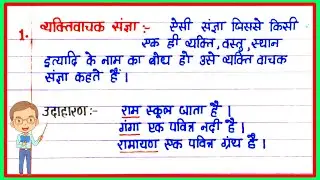 1. व्यक्तिवाचक संज्ञा :- ऐसी संज्ञा जिससे किसी
एक ही व्यक्ति, वस्तु, स्थान
इत्यादि के नाम का बोध हो उसे व्यक्ति वाचक
संज्ञा कहते हैं।
उदाहरण:- राम स्कूल जाता है।
गंगा एक पवित्र नदी है।
रामायण एक पवित्र ग्रंथ है।